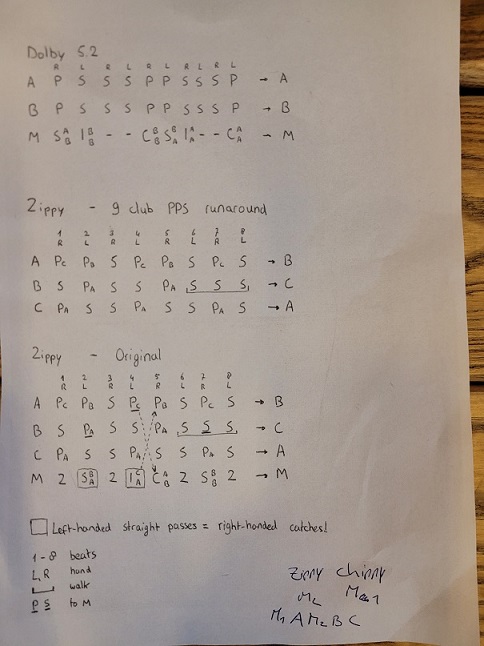 Dolby 5.2
R L R L R L R L R L
A P S S S P P S S S P → A
B P S S S P P S S S P → B
M S A B I B B - - C B B S B A I A A - - C A A → M
Zippy - 9 club PPS runaround
1 2 3 4 5 6 7 8
R L R L R L R L
A Pc PB S Pc PB S Pc S → B
B S PA S S PA S S S → C
C PA S S PA S S PA S → A
Zippy - Original
1 2 3 4 5 6 7 8
R L R L R L R L
A Pc PB S Pc PB S Pc S → B
B S PA S S PA S S S → C
C PA S S PA S S PA S → A
M 2 S B A 2 I C A C A B 2 S B B 2 → M
Left-handed straight passes = right-handed catches!
1-8 beats
L, R hand
walk
P S to M
Zippy Chippy
M1 A M2 B C